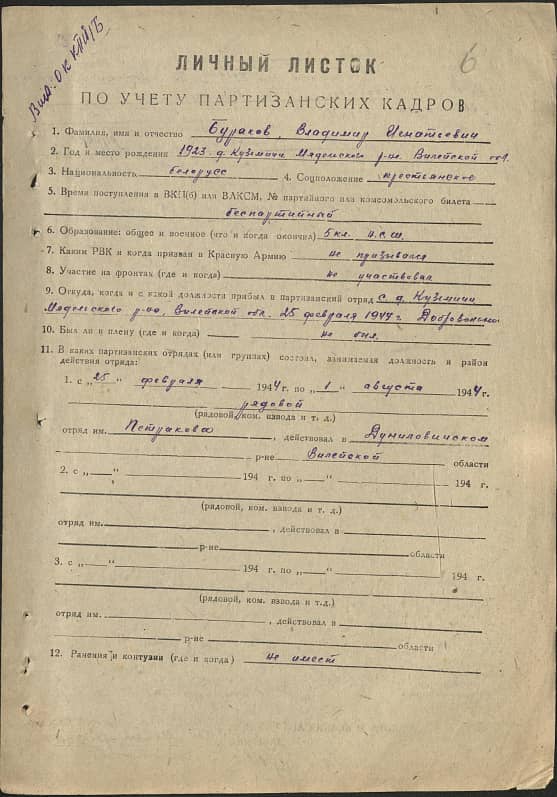 Вил. ОК КП(б)Б
6
ЛИЧНЫЙ ЛИСТОК
ПО УЧЕТУ ПАРТИЗАНСКИХ КАДРОВ
1. Фамилия, имя и отчество Бураков, Владимир Игнатьевич
2. Год и место рождения 1923 д. Кузьмичи Мядельского р-на Вилейской обл.
3. Национальность белорусс 4. Соцположение крестьянское
5. Время поступления в ВКП(б) или ВЛКСМ, № партийного или комсомольского билета
беспартийный
6. Образование: общее и военное (что и когда окончил) 5 кл. н.с.ш.
7. Каким РВК и когда призван в Красную Армию не призывался
8. Участие на фронтах (где и когда) не участвовал
9. Откуда, когда и с какой должности прибыл в партизанский отряд с д. Кузьмичи
Мядельского р-на, Вилейской обл. 25 февраля 1944 г. Добровольно
10. Был ли в плену (где и когда) не был.
11. В каких партизанских отрядах (или группах) состоял, занимаемая должность и район
действия отряда:
1. с „25“ февраля 1944 г. по „1“ августа 1944 г.
рядовой
(рядовой, ком. взвода и т. д.)
отряд им. Петракова, действовал в Дуниловичском
р-не Вилейской области
2. с „ “ 194 г. по „ “ 194 г.
(рядовой, ком. взвода и т. д.)
отряд им. , действовал в
р-не области
3. с „ “ 194 г. по „ “ 194 г.
(рядовой, ком. взвода и т.д.)
отряд им. , действовал в
р-не области
12. Ранения и контузии (где и когда) не имеет